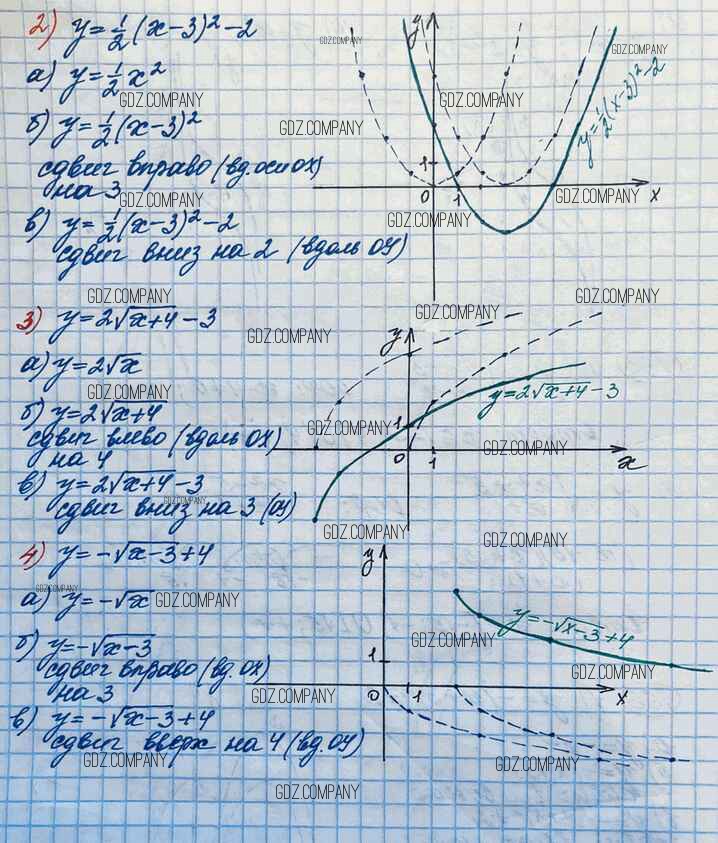 2) y = 1/2 (x-3)² - 2
а) y = 1/2 x²
GDZ.COMPANY
GDZ.COMPANY
GDZ.COMPANY
б) y = 1/2 (x-3)²
GDZ.COMPANY
GDZ.COMPANY
сдвиг вправо (вд. оси OX)
на 3
GDZ.COMPANY
в) y = 1/2 (x-3)² - 2
сдвиг вниз на 2 (вдоль OY)
y
1
0
1
x
y = 1/2 (x-3)² - 2
GDZ.COMPANY
GDZ.COMPANY
GDZ.COMPANY
GDZ.COMPANY
GDZ.COMPANY
3) y = 2√x+4 - 3
GDZ.COMPANY
а) y = 2√x
GDZ.COMPANY
б) y = 2√x+4
сдвиг влево (вдоль OX)
на 4
в) y = 2√x+4 - 3
GDZ.COMPANY
сдвиг вниз на 3 (OY)
y
1
0
1
x
y = 2√x+4 - 3
GDZ.COMPANY
GDZ.COMPANY
GDZ.COMPANY
GDZ.COMPANY
4) y = -√x-3 + 4
GDZ.COMPANY
а) y = -√x
GDZ.COMPANY
б) y = -√x-3
сдвиг вправо (вд. OX)
на 3
GDZ.COMPANY
в) y = -√x-3 + 4
сдвиг вверх на 4 (вд. OY)
GDZ.COMPANY
y
1
0
1
x
y = -√x-3 + 4
GDZ.COMPANY
GDZ.COMPANY
GDZ.COMPANY
GDZ.COMPANY